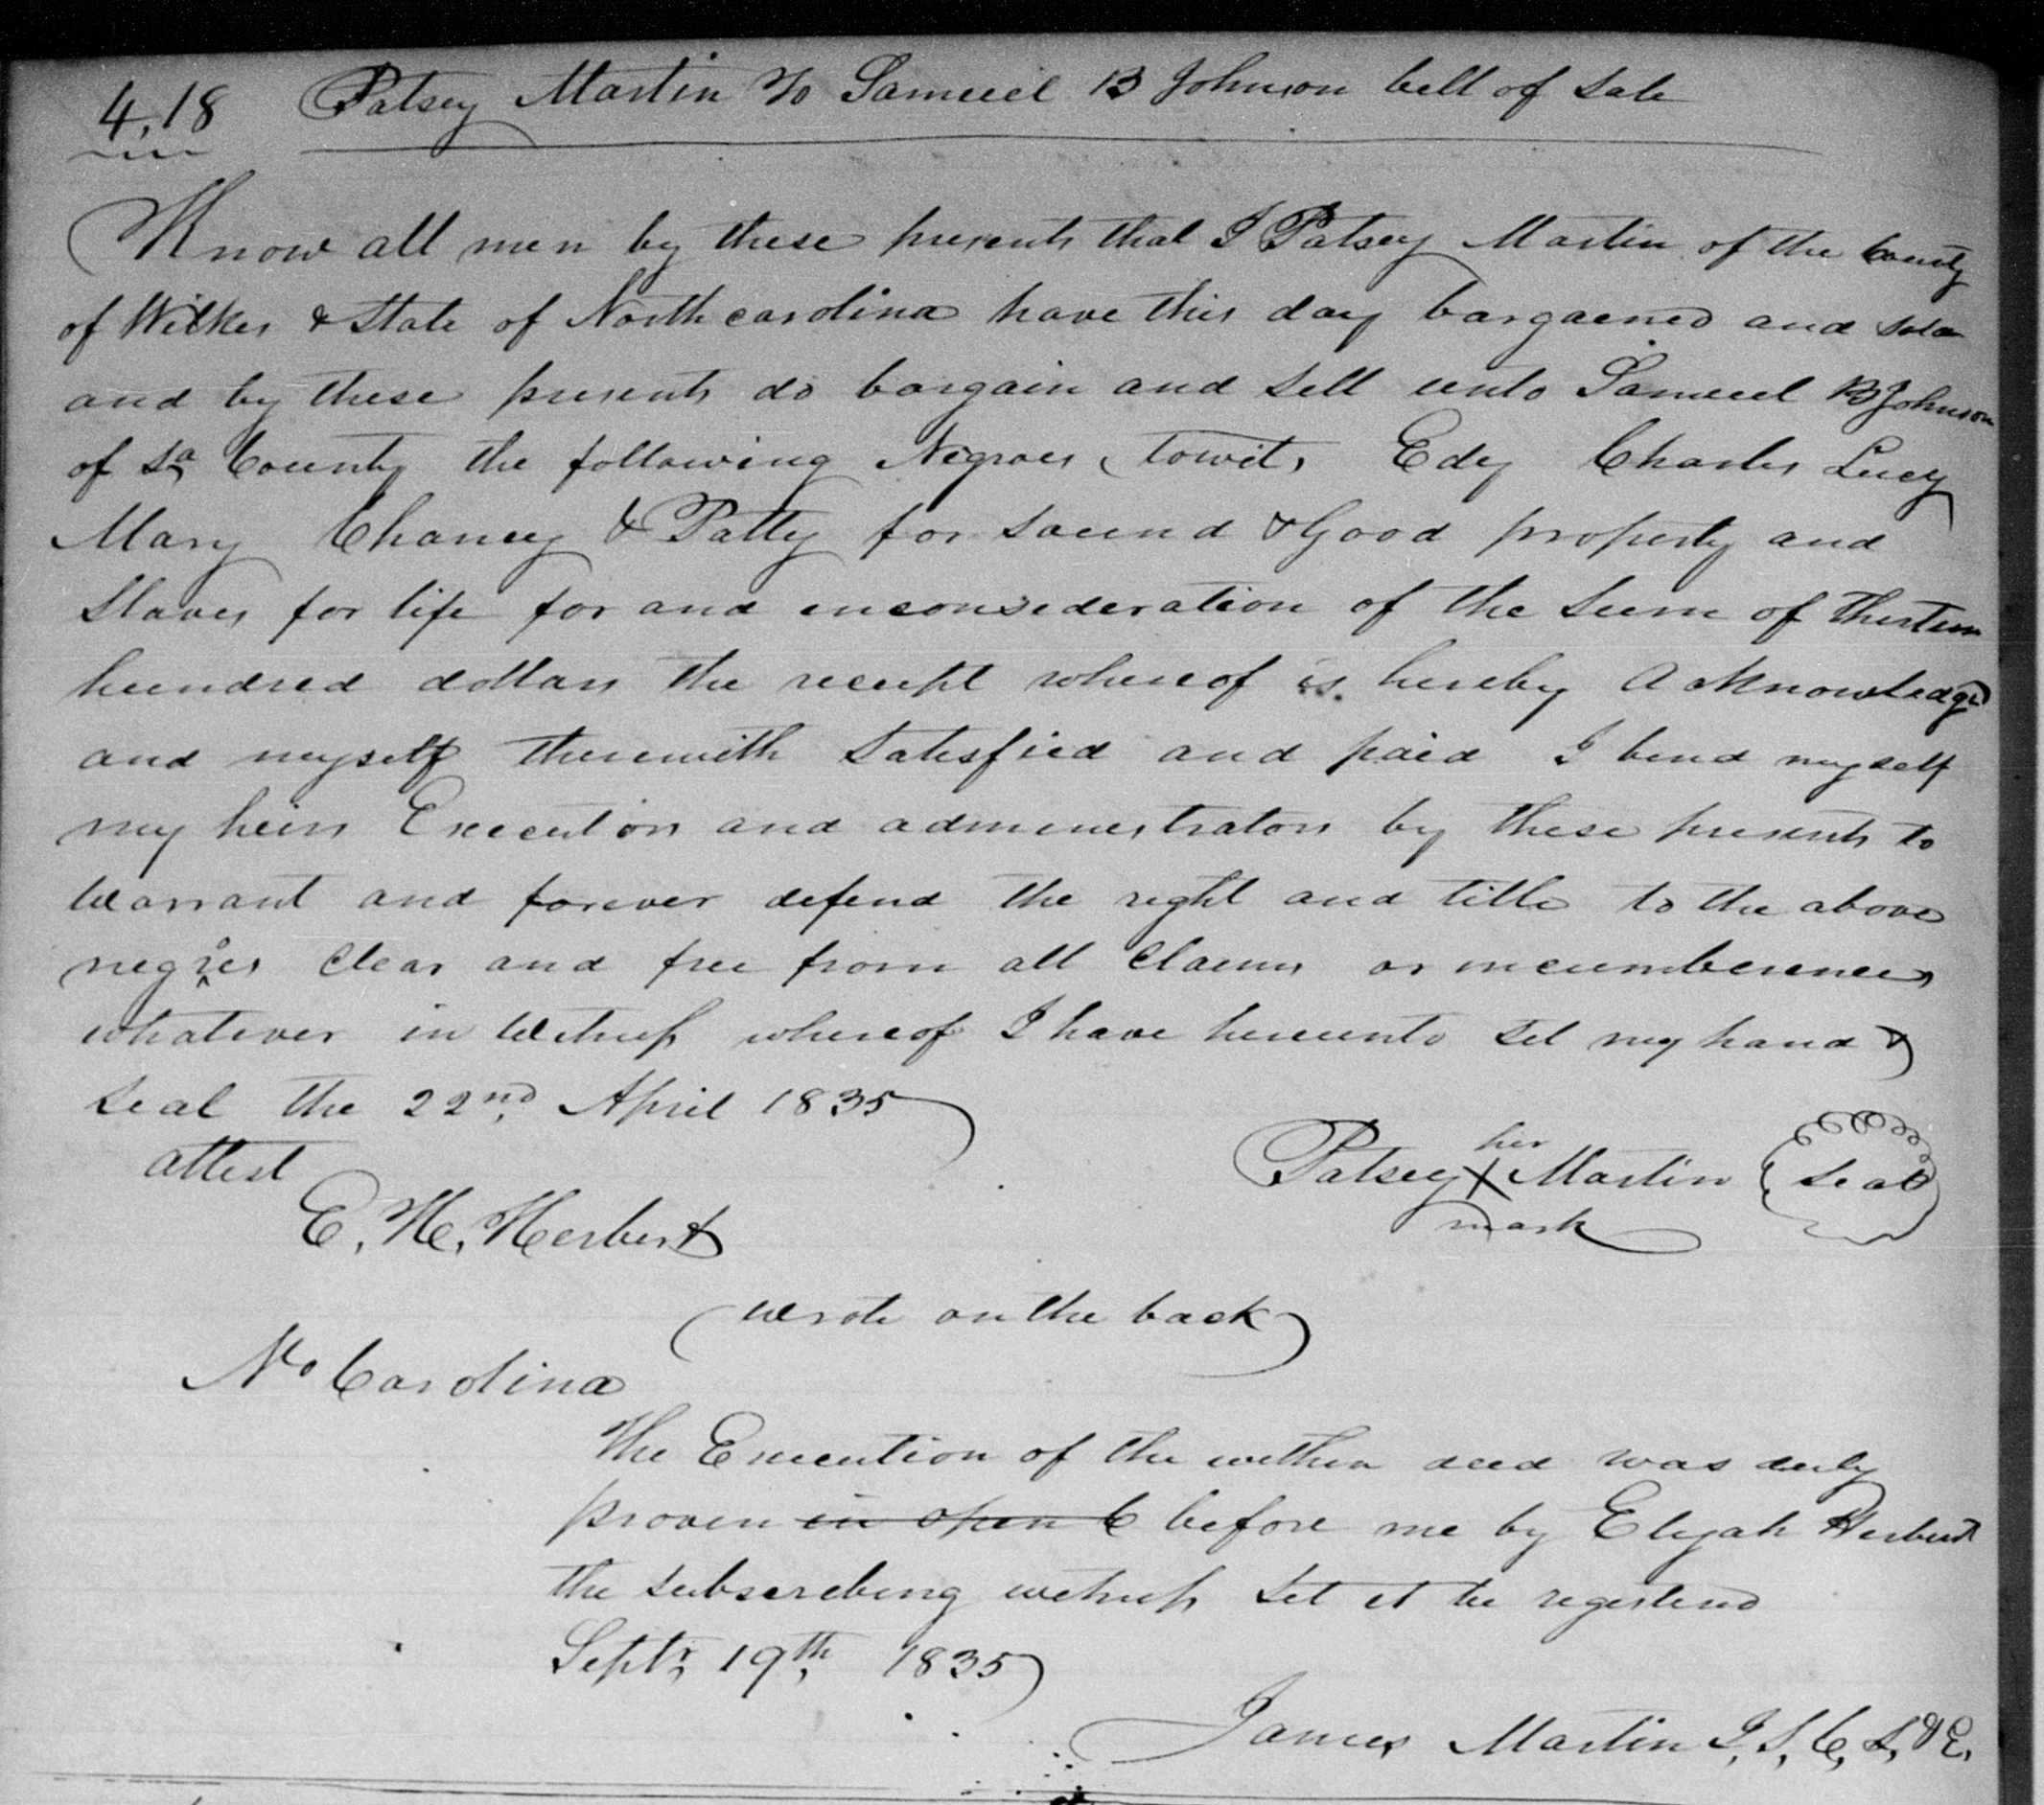 4,18 Patsey Martin to Samuel B Johnson bill of Sale
Know all men by these presents that I Patsey Martin of the County
of Wilkes & State of North carolina have this day bargained and sold
and by these presents do bargain and sell unto Samuel B Johnson
of sd County the following Negroes, towit, Edy Charles Lucy
Mary Chaney & Patty for sound & Good property and
Slaves for life for and inconsideration of the Sum of thirteen
hundred dollars the receipt whereof is hereby Acknowledged
and myself therewith Satisfied and paid I bind myself
my heirs Executors and administrators by these presents to
Warrant and forever defend the right and title to the above
negroes Clear and free from all Claims or incumberences
whatever in Witness whereof I have hereunto Set my hand &
Seal the 22nd April 1835
attest
Patsey her X mark Martin Seal
E. H. Herbert
(wrote on the back)
No Carolina
The Execution of the within deed was duly
proven in open C before me by Elijah Herbert
the subscribing witness Let it be registered
Septr 19th 1835
James Martin J. S. C. L. & E.